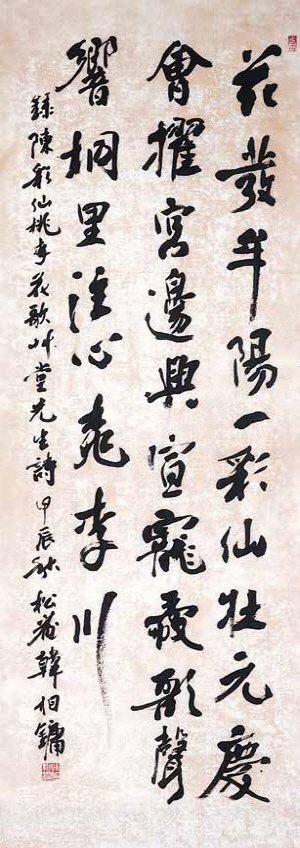 花發牟陽一彩仙壯元慶
會擢宮邊興宣寵愛歌聲
響桐里注心桃李川
錄陳彩仙桃李花歌艸堂先生詩 甲辰秋 松 韓伯鏞